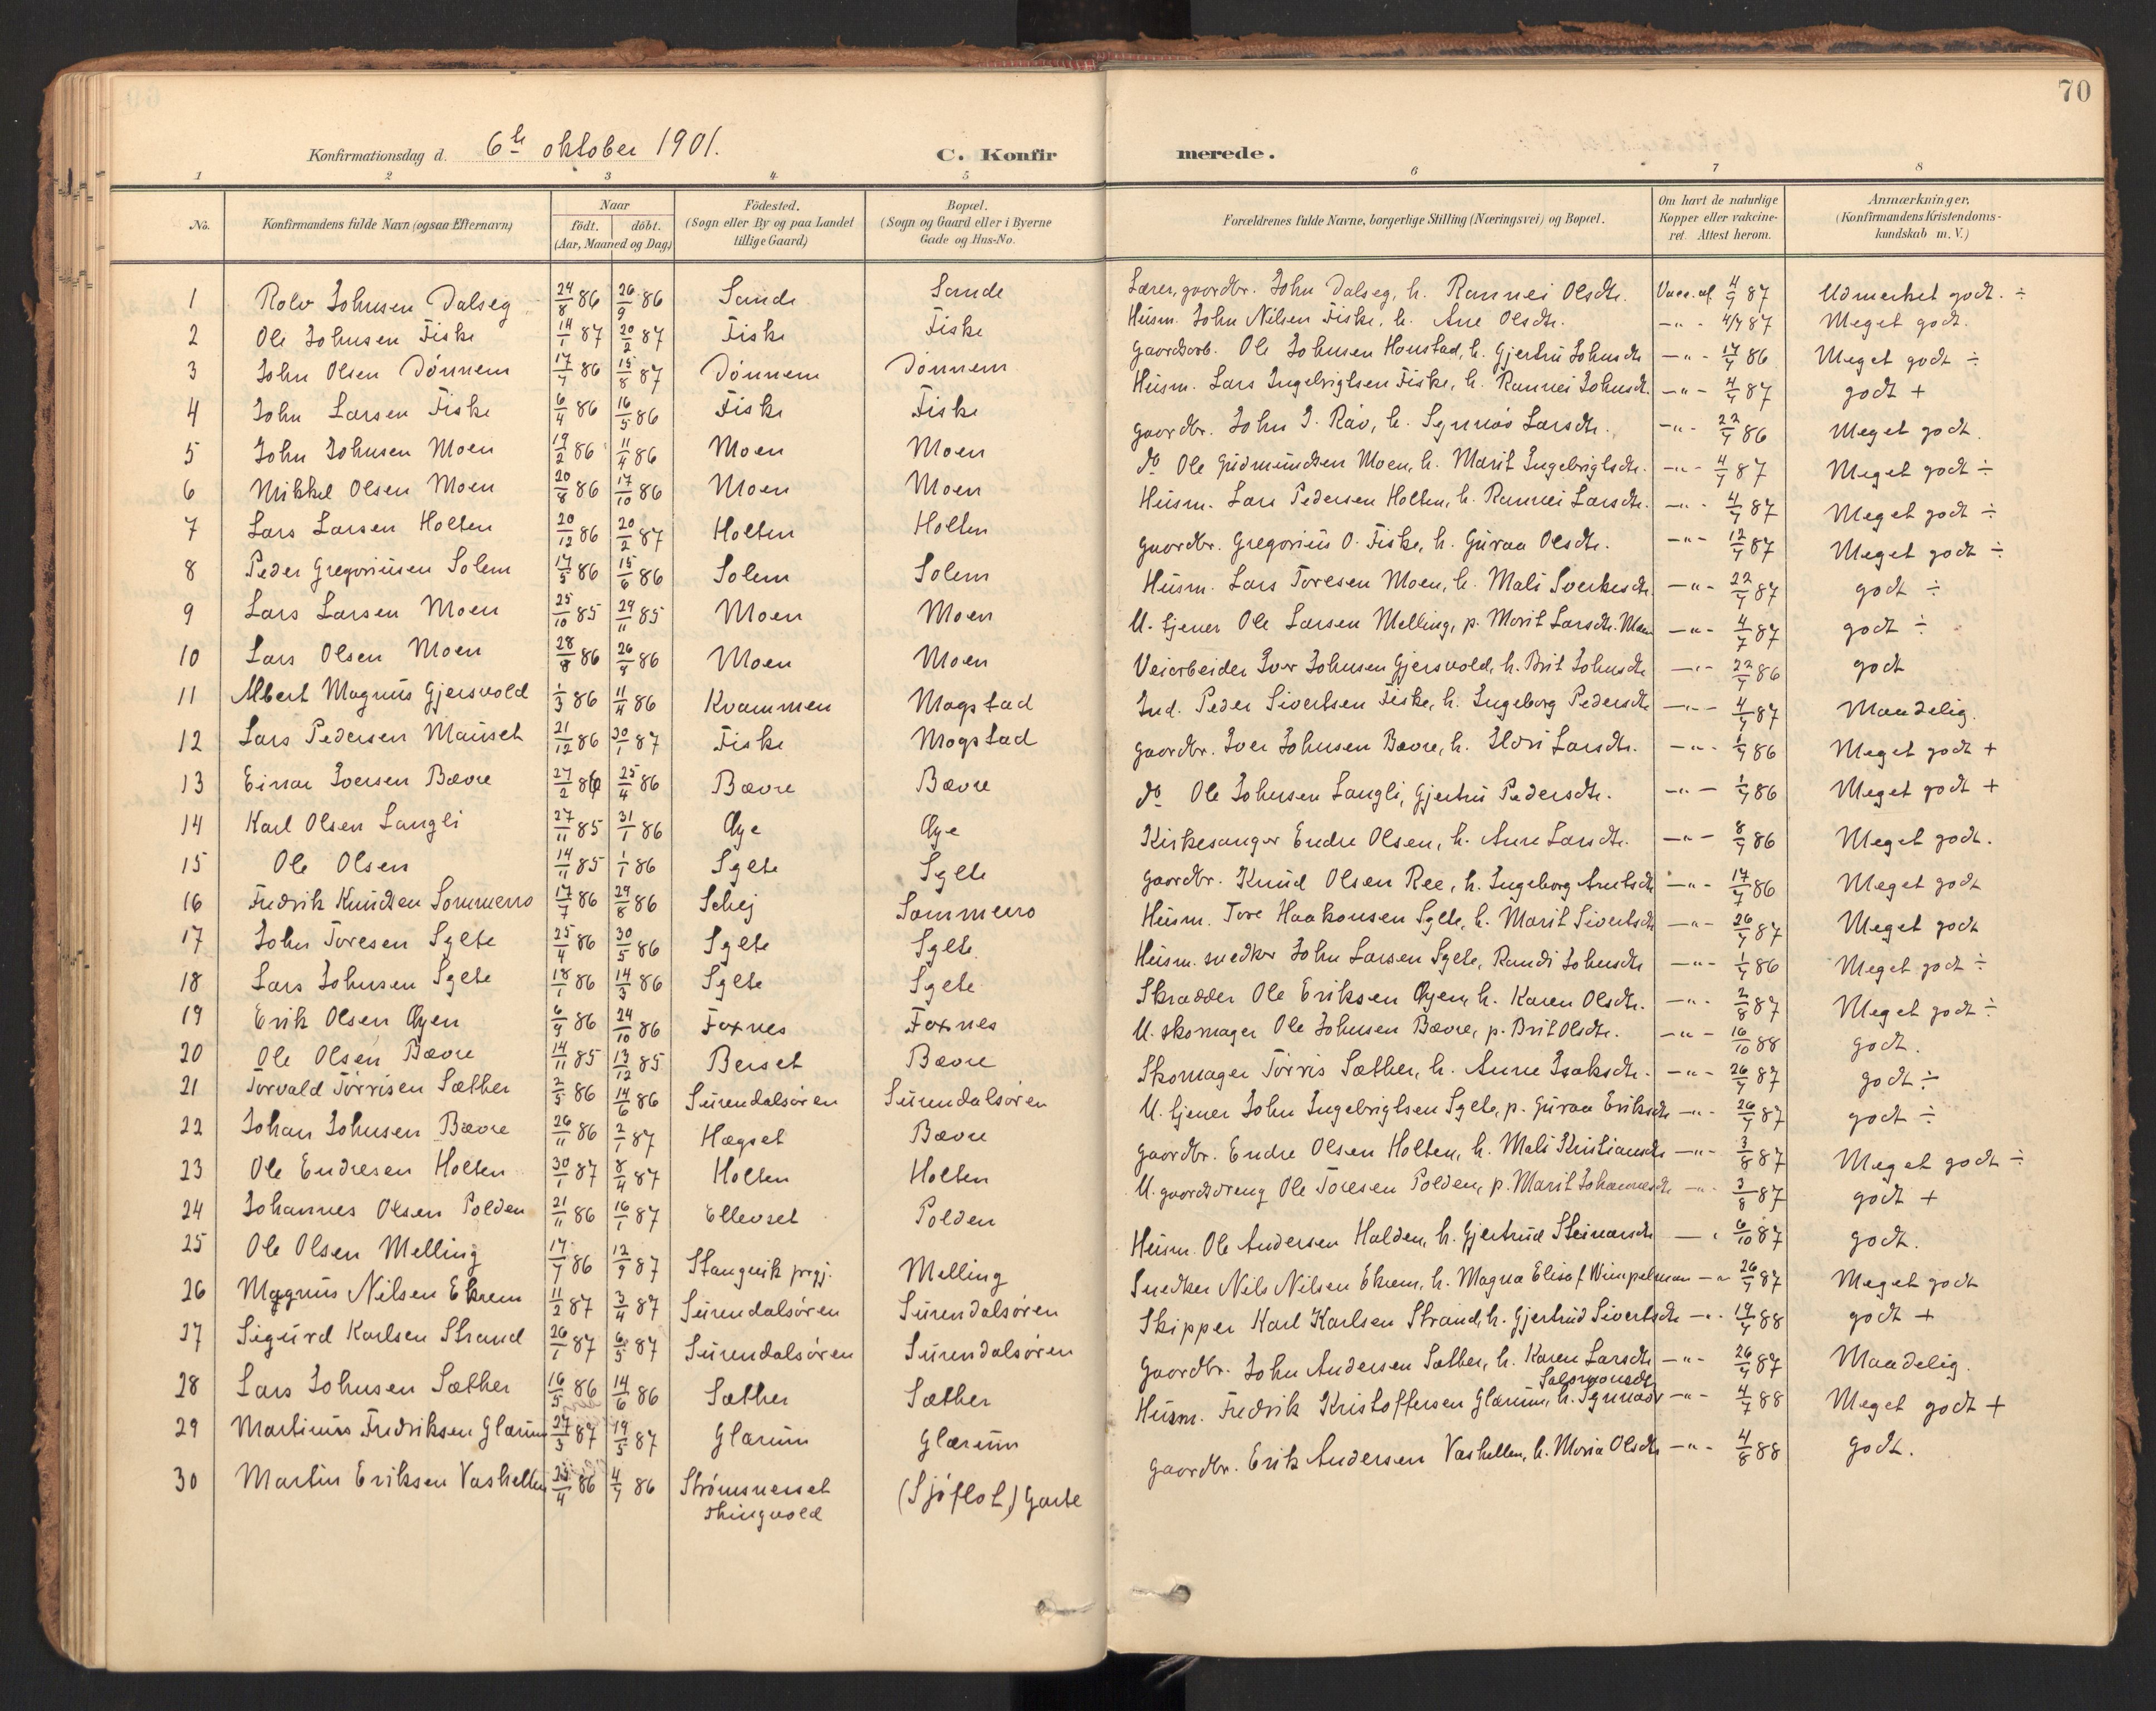 70
Konfirmationsdag d. 6te oktober 1901. C. Konfirmerede.
1 2 3 4 5 6 7 8
No. Konfirmandens fulde Navn (ogsaa Efternavn) Naar födt. döbt. (Aar, Maaned og Dag) Födested. (Sogn eller By og paa Landet tillige Gaard) Bopæl. (Sogn og Gaard eller i Byerne Gade og Hus-No. Forældrenes fulde Navne, borgerlige Stilling (Næringsvei) og Bopæl. Om havt de naturlige Kopper eller vakcineret. Attest herom. Anmærkninger, (Konfirmandens Kristendomskundskab m. V.)
1 Rolv Johnsen Dalseg 24/8 86 26/9 86 Sande Sande Lærer, gaardbr. John Dalseg, h. Rannei Olsdtr. Vacc. at. 4/7 87 Udmerket godt. ÷
2 Ole Johnsen Fiske 14/1 87 20/2 87 Fiske Fiske Husm. John Nilsen Fiske, h. Ane Olsdtr. -"- 4/7 87 Meget godt.
3 John Olsen Dönnem 17/7 86 15/8 87 Dönnem Dönnem Gaardarb. Ole Johnsen Honstad, h. Gjertru Johnsdtr -"- 17/7 86 Meget godt ÷
4 John Larsen Fiske 6/4 86 16/5 86 Fiske Fiske Husm. Lars Ingebrigtsen Fiske, h. Rannei Johnsdt. -"- 4/7 87 godt +
5 John Johnsen Moen 19/2 86 11/4 86 Moen Moen gaardbr. John J. Räv, h. Synnöv Larsdtr. -"- 22/7 86 Meget godt.
6 Mikkel Olsen Moen 20/8 86 17/10 86 Moen Moen do Ole Gudmundsen Moen, h. Marit Ingebrigtsdtr. -"- 4/7 87 Meget godt ÷
7 Lars Larsen Holten 20/12 86 20/2 87 Holten Holten Husm. Lars Pedersen Holten, h. Rannei Larsdtr. -"- 4/7 87 Meget godt ÷
8 Peder Gregoriusen Solem 17/5 86 15/6 86 Solem Solem gaardbr. Gregorius O. Fiske, h. Guraa Olsdtr. -"- 12/7 87 Meget godt ÷
9 Lars Larsen Moen 25/10 85 29/11 85 Moen Moen Husm. Lars Toresen Moen, h. Mali Sverkesdtr. -"- 22/7 87 godt ÷
10 Lars Olsen Moen 28/8 86 26/9 86 Moen Moen U. tjener Ole Larsen Melling, p. Marit Larsdtr. Moen -"- 4/7 87 godt ÷
11 Albert Magnus Gjersvold 1/3 86 11/4 86 Kvammen Mogstad Veiarbeider Iver Johnsen Gjersvold, h. Brit Johnsdtr -"- 22/7 86 godt
12 Lars Pedersen Mauset 21/12 86 30/1 87 Fiske Mogstad Ind. Peder Sivertsen Fiske, h. Ingeborg Pedersdtr -"- 4/7 87 Maadelig.
13 Einar Iversen Bævre 27/2 86 25/4 86 Bævre Bævre gaardbr. Iver Johnsen Bævre, h. Ildri Larsdtr. -"- 1/7 86 Meget godt +
14 Karl Olsen Langli 27/11 85 31/1 86 Øye Øye do Ole Johnsen Langli, Gjertru Pedersdtr. -"- 1/7 86 Meget godt +
15 Ole Olsen 14/11 85 1/1 86 Sylte Sylte Kirkesanger Endre Olsen, h. Anne Larsdtr. -"- 8/7 86 Meget godt.
16 Fredrik Knudsen Sommerro 17/7 86 29/8 86 Schej Sommerro gaardbr. Knud Olsen Ree, h. Ingeborg Arntsdtr -"- 17/7 86 Meget godt
17 John Toresen Sylte 25/4 86 30/5 86 Sylte Sylte. Husm. Tore Haakonsen Sylte, h. Marit Sivertsdtr -"- 26/7 87 Meget godt
18 Lars Johnsen Sylte 18/1 86 14/3 86 Sylte Sylte Husm. snedker John Larsen Sylte, Randi Johnsdtr -"- 1/7 86 Meget godt ÷
19 Erik Olsen Øyen 6/9 86 24/10 86 Foxnes Foxnes Skrædder Ole Eriksen Øyen, h. Karen Olsdtr. -"- 2/8 87 Meget godt ÷
20 Ole Olsen Bævre 14/11 85 13/12 85 Berset Bævre U. skomager Ole Johnsen Bævre, p. Brit Olsdtr. -"- 16/10 88 godt.
21 Torvald Törrisen Sæther 2/5 86 14/6 86 Surendalsören Surendalsören Skomager Törris Sæther, h. Anne Isaksdtr. -"- 26/7 87 godt ÷
22 Johan Johnsen Bævre 26/11 86 2/1 87 Hægset Bævre U. tjener John Ingebrigtsen Sylte, p. Guraa Eriksdtr -"- 26/7 87 godt ÷
23 Ole Endresen Holten 30/1 87 8/4 87 Holten Holten gaardbr. Endre Olsen Holten, h. Mali Kristiansdtr -"- 3/8 87 Meget godt ÷
24 Johannes Olsen Polden 21/11 86 16/1 87 Ellevset Polden U. gaardsdreng Ole Toresen Polden, p. Marit Johannesdtr -"- 3/8 87 godt +
25 Ole Olsen Melling 17/7 86 12/9 87 Stangvik prgj. Melling Husm. Ole Andersen Halden, h. Gjertrud Steinarsdtr -"- 6/10 87 godt.
26 Magnus Nilsen Ekrem 11/2 87 3/4 87 Surendalsören Surendalsören Snedker Nils Nilsen Ekrem, h. Magna Elisaf Wimpelman -"- 26/7 87 Meget godt
27 Sigurd Karlsen Strand 26/1 87 6/5 87 Surendalsören Surendalsören Skipper Karl Karlsen Strand, h. Gjertrud Sivertsdtr -"- 19/7 88 godt +
28 Lars Johnsen Sæther 16/5 86 14/6 86 Sæther Sæther Gaardbr. John Andersen Sæther, h. Karen Larsdtr -"- 26/7 87 Maadelig.
29 Martinus Fredriksen Glærum 27/3 87 19/5 87 Glærum Glærum Husm. Fredrik Kristoffersen Glærum, h. Synnöv Salomonsdtr -"- 4/7 88 Meget godt +
30 Martin Eriksen Vashellen 25/4 86 4/7 86 Strömsneset Thingvold (Sjöflot) Garte gaardbr. Erik Andersen Vashellen, h. Maria Olsdtr -"- 4/8 88 godt.